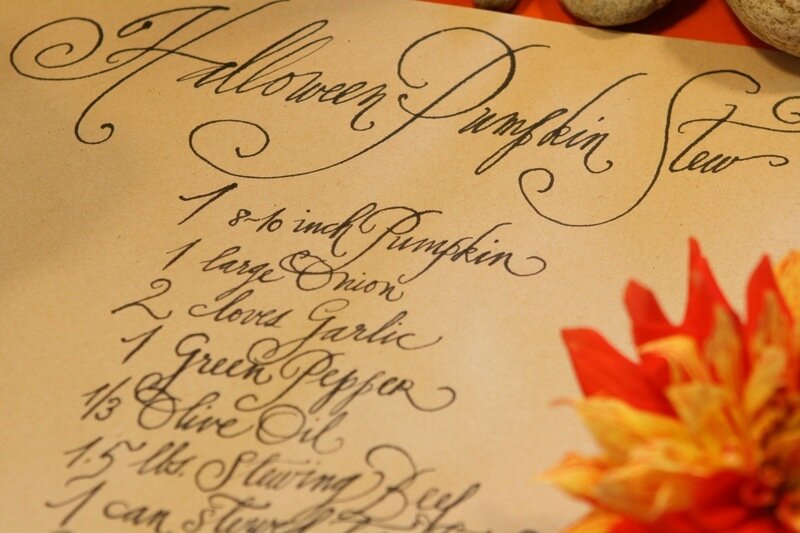 Halloween Pumpkin Stew
1 8-10 inch Pumpkin
1 large Onion
2 cloves Garlic
1 Green Pepper
1/3 Olive Oil
1.5 lbs. Stewing Beef
1 can Stewed